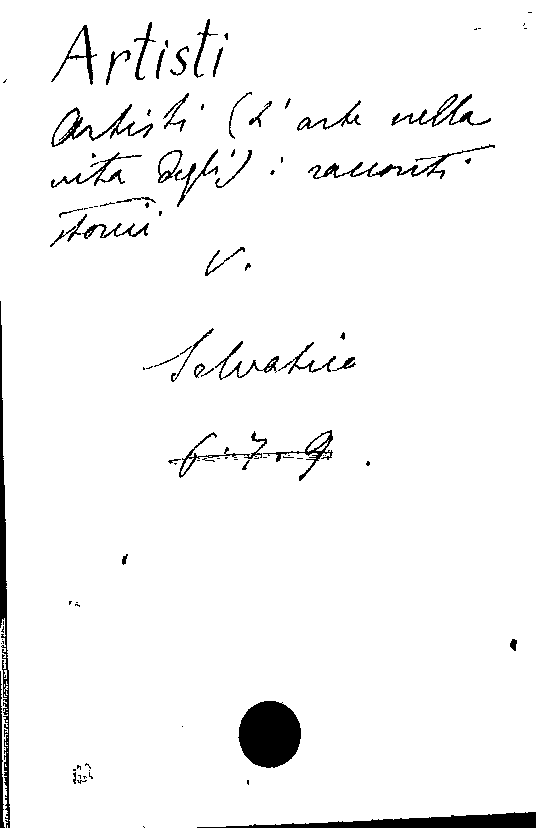 Artisti
Artisti (L'arte nella
vita degli) : racconti
storici
V.
Selvatico
6.7.9.